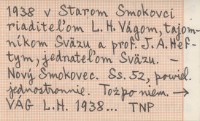 1938 v Starom Smokovci
riaditeľom L.H. Vágom, tajom-
níkom Sväzu a prof. J.A. Hef-
tym, jednateľom Sväzu. —
Nový Smokovec. Ss. 52, powiel.
jednostronnie. Tożpo niem →
VÁG L.H. 1938... TNP